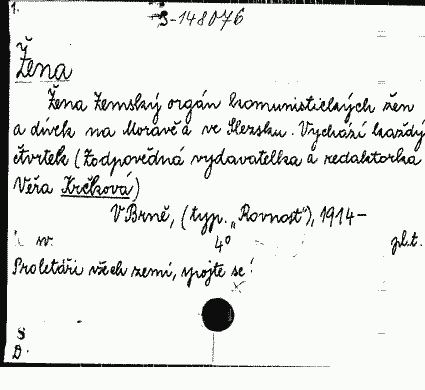 1.
S-148076
Žena
Žena Zemský orgán komunistických žen
a dívek na Moravě a ve Slezsku. Vychází každý
čtvrtek (Zodpovědná vydavatelka a redaktorka
Věra Krčková)
V Brně, (typ. „Rovnost"), 1914-
sv. 4° pl.t.
Proletáři všech zemí, spojte se!
S
D.